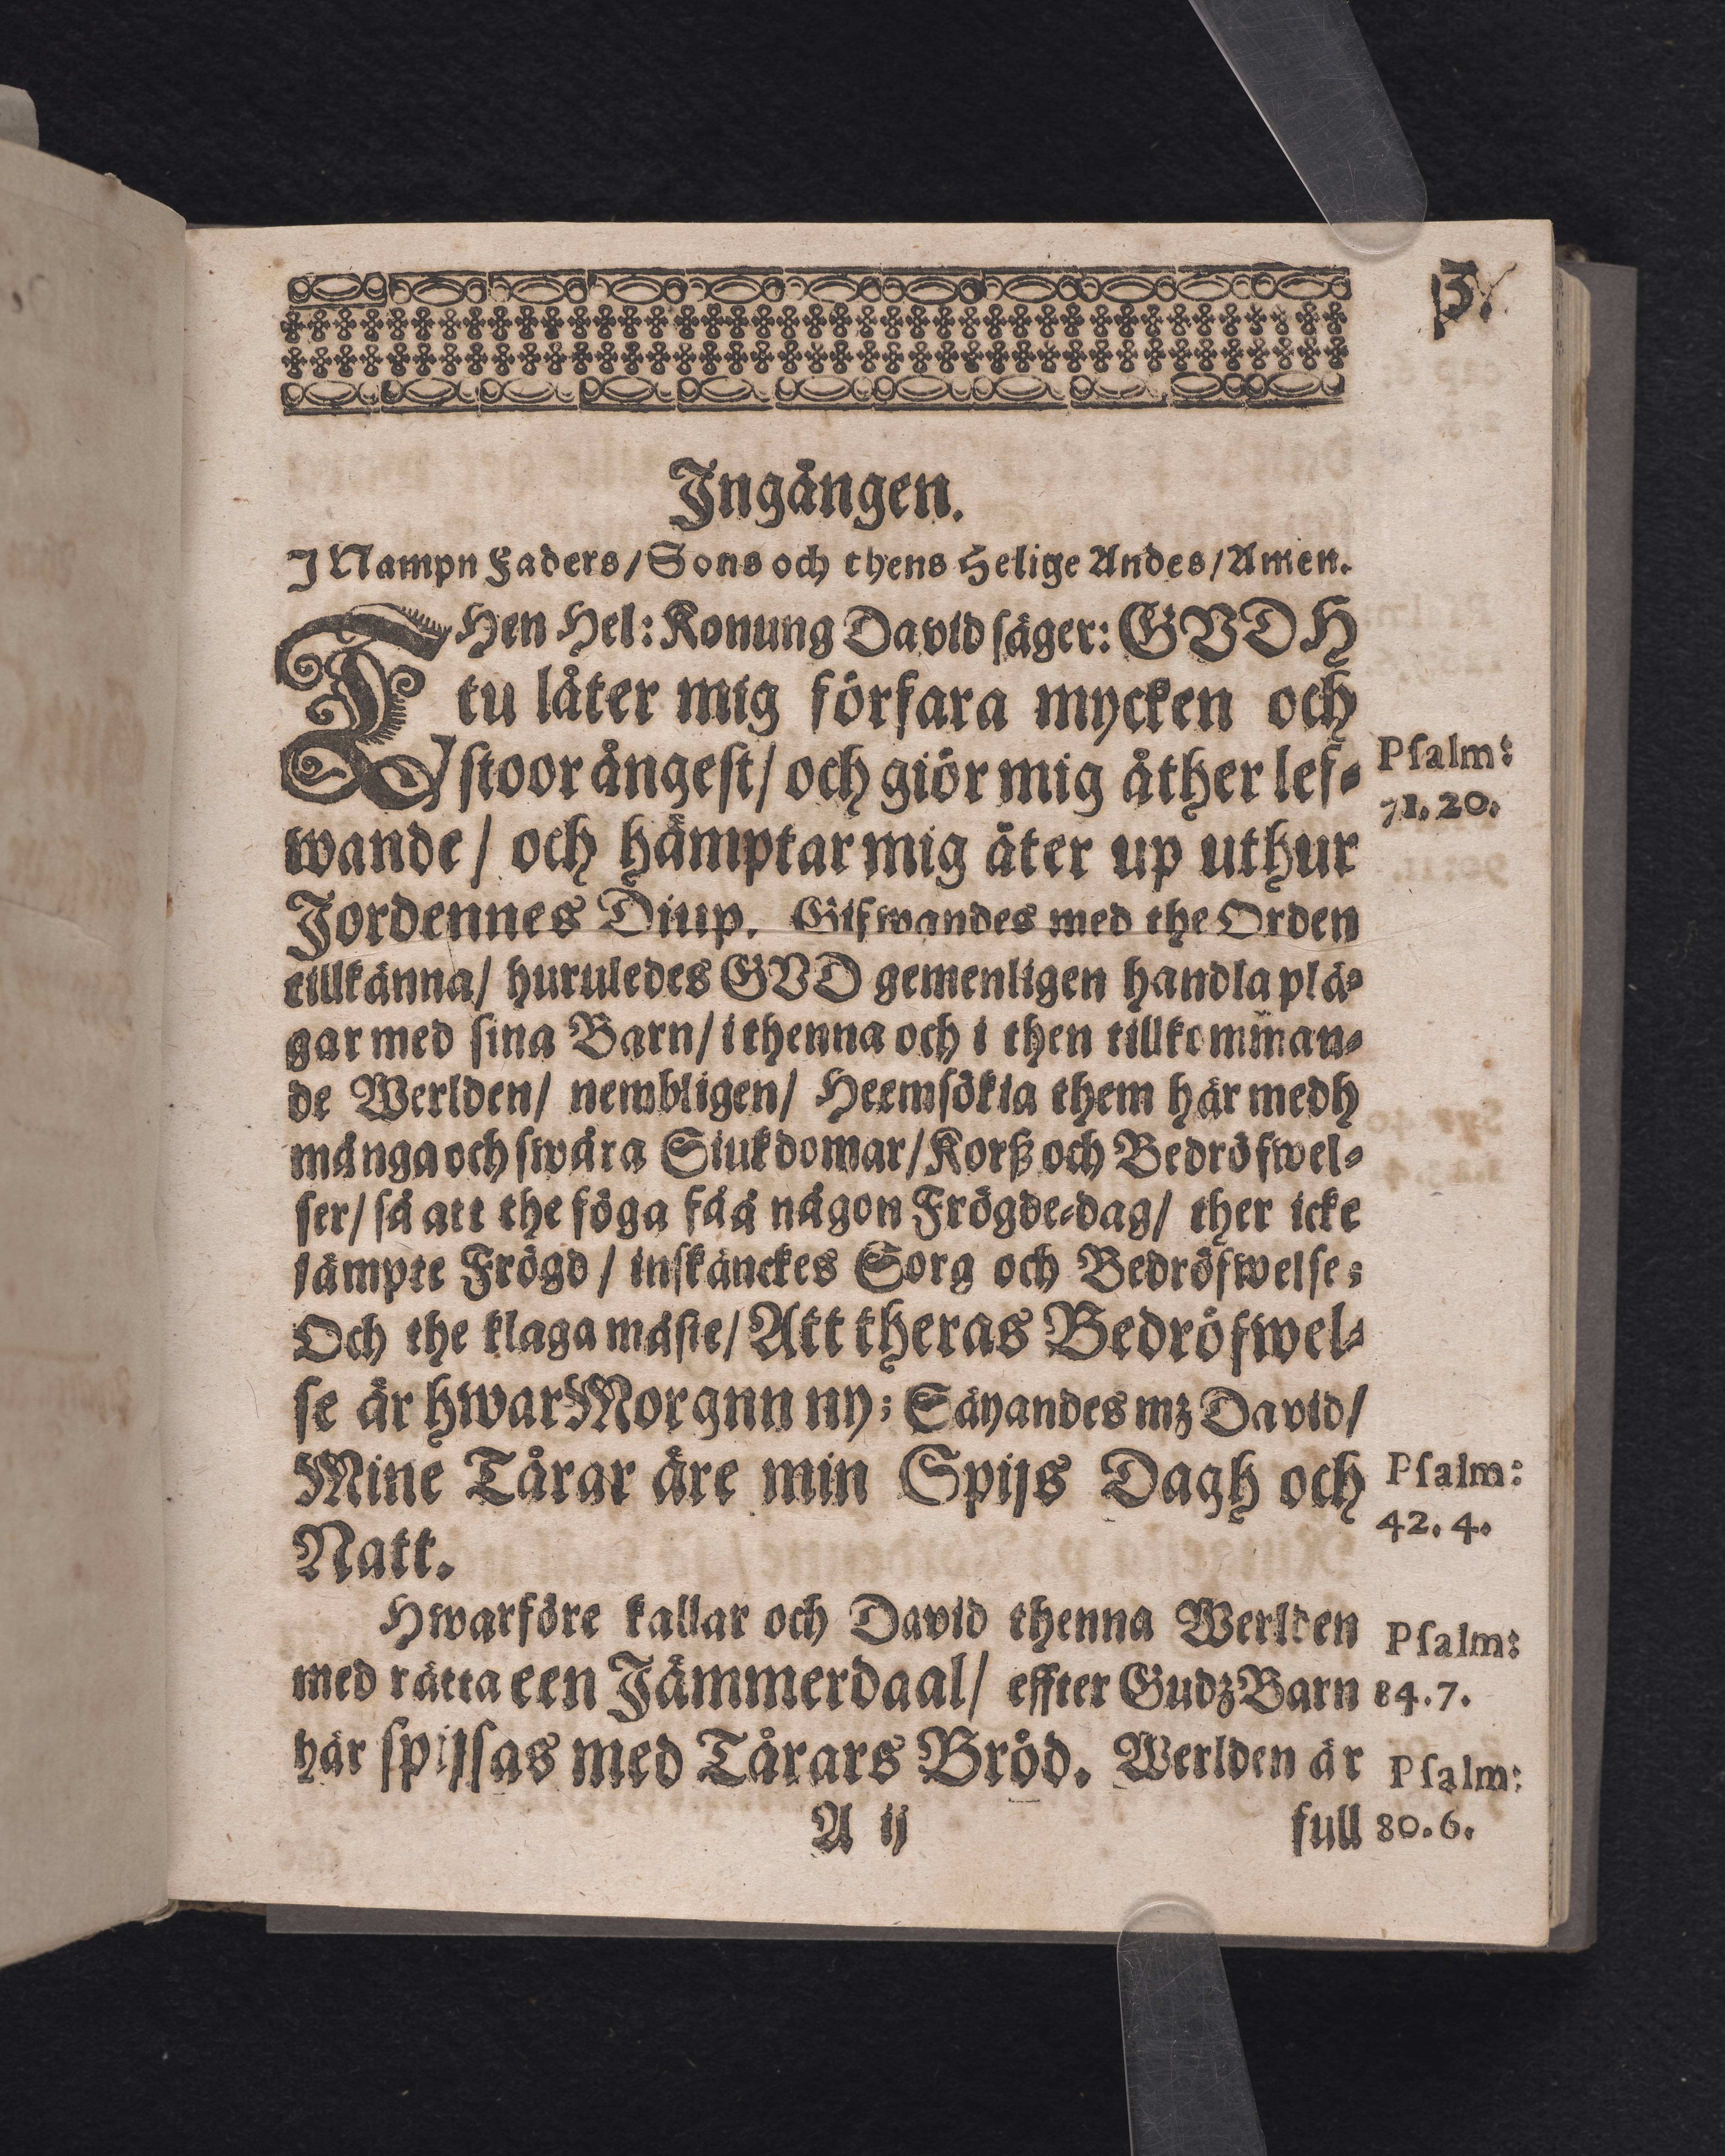 3.
Ingången.
I Nampn Faders/Sons och thens Helige Andes/Amen.
THen Hel: Konung David säger: GVDH
tu låter mig förfara mycken och
stoor ångest/ och giör mig åther lef-
wande/ och hämptar mig åter up uthur
Jordennes Diup. Gifwandes med the Orden
tillkänna/ huruledes GVD gemenligen handla plä-
gar med sina Barn/ i thenna och i then tillkomman-
de Werlden/ nembligen/ Heemsökia them här medh
många och swåra Siukdomar/Korß och Bedröfwel-
ser/ så att the föga fåå någon Frögde-dag/ ther icke
jämpte Frögd/ inskänckes Sorg och Bedröfwelse;
Och the klaga måste/ Att theras Bedröfwel-
se är hwar Morgnn ny; Säyandes mz David/
Mine Tårar äre min Spijs Dagh och
Natt.
Hwarföre kallar och David thenna Werlden
med rätta een Jämmerdaal/ effter Gudz Barn
här spijsas med Tårars Bröd. Werlden är
A ij
full
Psalm:
71. 20.
Psalm:
42. 4.
Psalm:
84. 7.
Psalm:
80. 6.